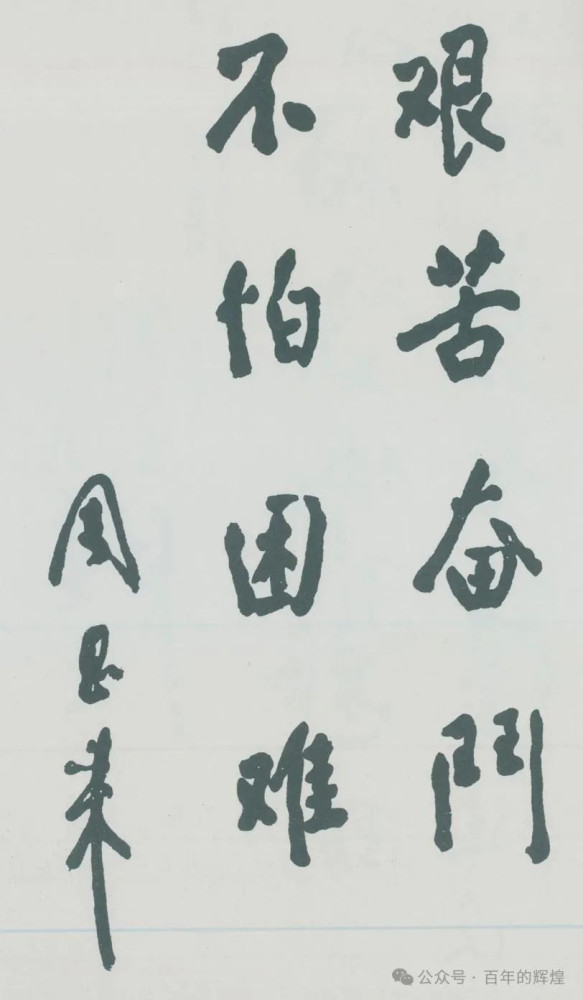 艰苦奋鬥
不怕困难
周恩来
公众号 · 百年的辉煌